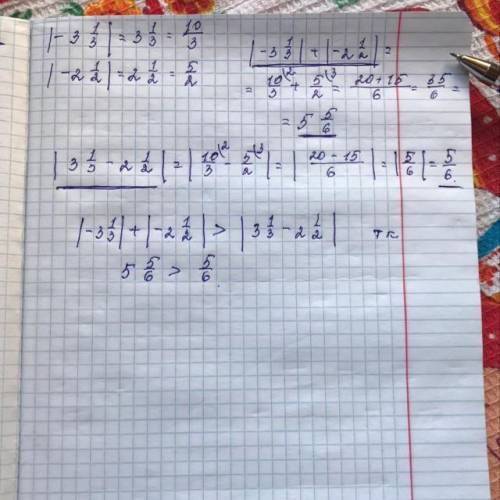 |-3 1/3| = 3 1/3 = 10/3
|-2 1/2| = 2 1/2 = 5/2
|-3 1/3| + |-2 1/2| =
= 10/3 \2 + 5/2 \3 = 20+15/6 = 35/6 =
= 5 5/6
|3 1/3 - 2 1/2| = |10/3 \2 - 5/2 \3| = |20-15/6| = |5/6| = 5/6.
|-3 1/3| + |-2 1/2| > |3 1/3 - 2 1/2| тк
5 5/6 > 5/6.